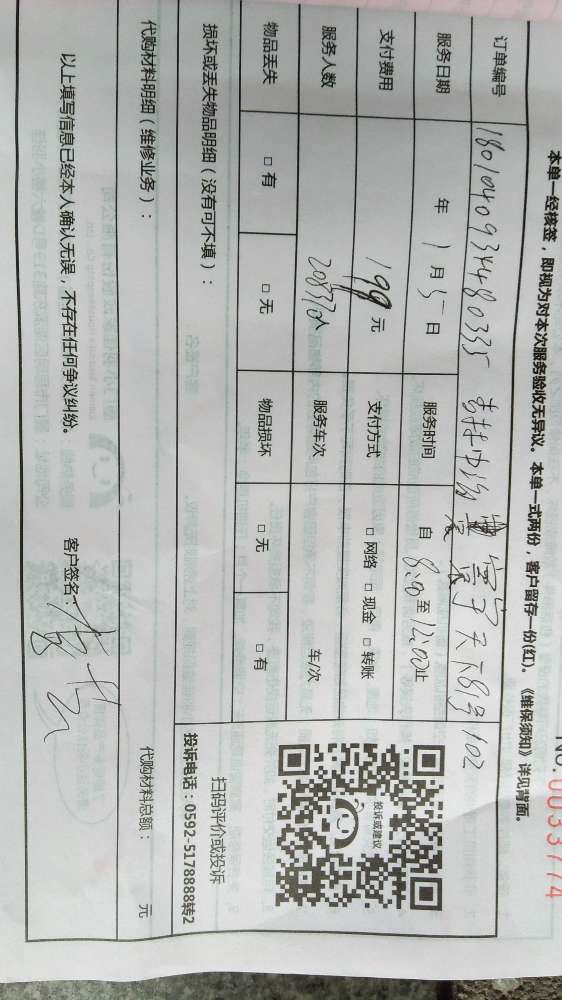 No.0033774
本单一经核签，即视为对本次服务验收无异议。本单一式两份，客户留存一份(红)。《维保须知》详见背面。
订单编号 18010409344480335 102
服务日期 年 1 月 5 日 服务时间 自 8:00 至 12:00 止
支付费用 199 元 支付方式 □ 网络 □ 现金 □ 转账
服务人数 人 服务车次 车/次
物品丢失 □ 有 □ 无 物品损坏 □ 无 □ 有
投诉或建议
扫码评价或投诉
投诉电话：0592-5178888转2
损坏或丢失物品明细（没有可不填）：
代购材料明细（维修业务）： 代购材料总额： 元
以上填写信息已经本人确认无误，不存在任何争议纠纷。 客户签名：